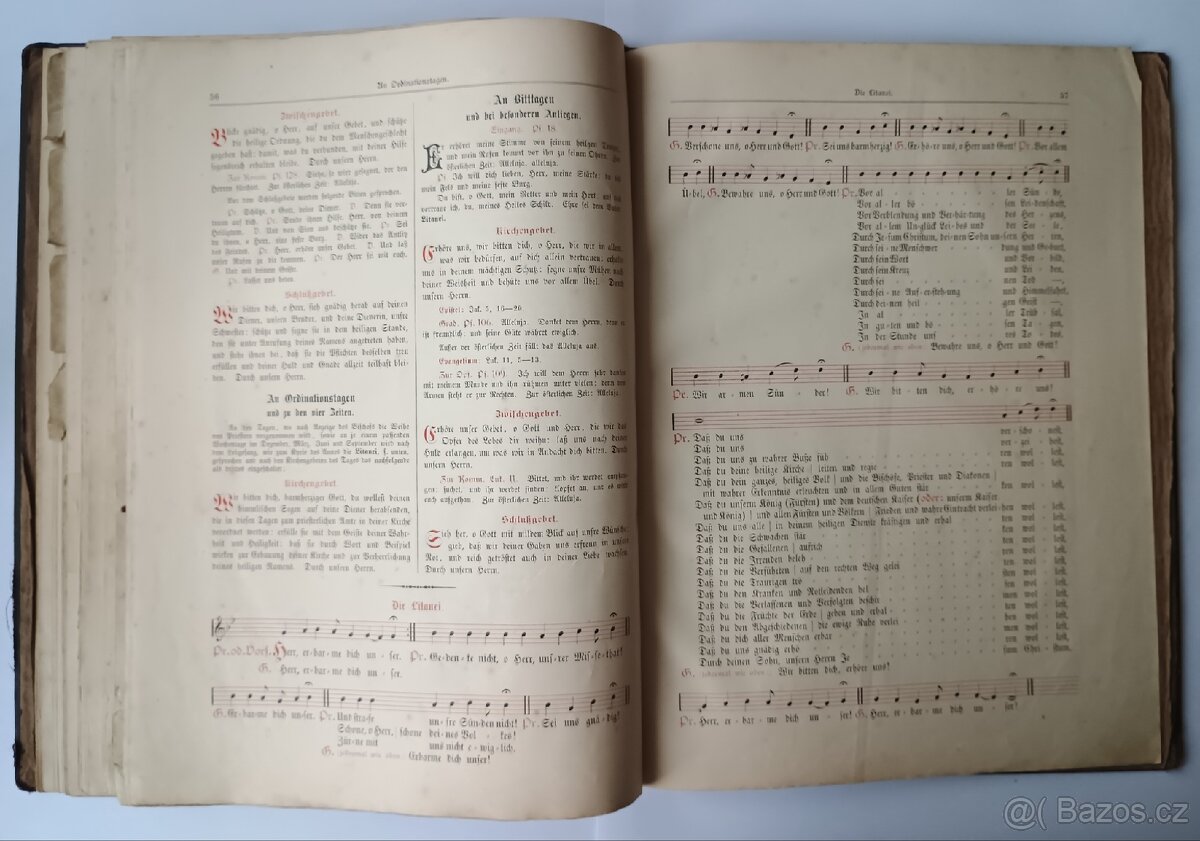 56
An Ordinationstagen.
Zwischengebet.
Blicke gnädig, o Herr, auf unser Gebet, und schütze
die heilige Ordnung, die du dem Menschengeschlecht
gegeben hast: damit, was du verbunden, mit deiner Hilfe
segensreich erhalten bleibe. Durch unsern Herrn.
Zur Komm. Pf. 128. Siehe, so wird gesegnet, der den
Herren fürchtet. Zur österlichen Zeit: Alleluja.
Vor dem Schlußgebet werden folgende Bitten gesprochen.
Pr. Schütze, o Gott, deine Diener. D. Denn sie ver-
trauen auf dich. Pr. Sende ihnen Hilfe, Herr, von deinem
Heiligtum. D. Und von Sion aus beschütze sie. Pr. Sei
du ihnen, o Herr, eine feste Burg. D. Wider das Antlitz
des Feindes. Pr. Herr, erhöre unser Gebet. D. Und laß
unser Rufen zu dir kommen. Pr. Der Herr sei mit euch.
G. Und mit deinem Geiste.
Pr. Lasset uns beten.
Schlußgebet.
Wir bitten dich, o Herr, sieh gnädig herab auf deinen
Diener, unsern Bruder, und deine Dienerin, unsre
Schwester: schütze und segne sie in dem heiligen Stande,
den sie unter Anrufung deines Namens angetreten haben,
und stehe ihnen bei, daß sie die Pflichten desselben treu
erfüllen und deiner Huld und Gnade allzeit teilhaft blei-
ben. Durch unsern Herrn.
An Ordinationstagen
und zu den vier Zeiten.
An den Tagen, wo nach Anzeige des Bischofs die Weihe
von Priestern vorgenommen wird, sowie an je einem passenden
Wochentage im Dezember, März, Juni und September wird nach
dem Leitgesang, wie zum Kyrie des Amtes die Litanei, s. unten,
gesprochen und nach den Kirchengebeten des Tages das nachfolgende
als drittes eingeschaltet.
Kirchengebet.
Wir bitten dich, barmherziger Gott, du wollest deinen
himmlischen Segen auf deine Diener herabsenden,
die in diesen Tagen zum priesterlichen Amte in deiner Kirche
verordnet werden: erfülle sie mit dem Geiste deiner Wahr-
heit und Heiligkeit: daß sie durch Wort und Beispiel
wirken zur Erbauung deiner Kirche und zur Verherrlichung
deines heiligen Namens. Durch unsern Herrn.
An Bittagen
und bei besonderen Anliegen.
Eingang. Pf. 18.
Er erhöret meine Stimme von seinem heilgen Tempel,
und mein Rufen kommt vor ihn zu seinen Ohren. Zur
österlichen Zeit: Alleluja, alleluja.
Pf. Ich will dich lieben, Herr, meine Stärke: du bist
mein Fels und meine feste Burg.
Du bist, o Gott, mein Retter und mein Hort und
vertraue ich, du, meines Heiles Schild. Ehre sei dem Vater.
Litanei.
Kirchengebet.
Erhöre uns, wir bitten dich, o Herr, die wir in allem,
was wir bedürfen, auf dich allein vertrauen: erhalte
uns in deinem mächtigen Schutz: segne unsre Mühen nach
deiner Weisheit und behüte uns vor allem Übel. Durch
unsern Herrn.
Epistel: Jak. 5, 16—20
Grad. Pf. 106. Alleluja. Danket dem Herrn, denn er
ist freundlich, und seine Güte währet ewiglich.
Außer der österlichen Zeit fällt das Alleluja aus.
Evangelium: Luk. 11, 5—13.
Zur Opf. Pf. 109. Ich will dem Herrn sehr danken
mit meinem Munde und ihn rühmen unter vielen: denn dem
Armen steht er zur Rechten. Zur österlichen Zeit: Alleluja.
Zwischengebet.
Erhöre unser Gebet, o Gott und Herr, die wir das
Opfer des Lobes dir weihn: laß uns nach deiner
Huld erlangen, um was wir in Andacht dich bitten. Durch
unsern Herrn.
Zur Komm. Luk. 11. Bittet, und ihr werdet empfan-
gen, suchet, und ihr werdet finden: klopfet an, und es wird
euch aufgethan. Zur österlichen Zeit: Alleluja.
Schlußgebet.
Sieh her, o Gott mit mildem Blick auf unsre Wünsche:
gieb, daß wir deiner Gaben uns erfreun in unsrer
Not, und reich getröstet auch in deiner Liebe wachsen.
Durch unsern Herrn.
Die Litanei
Pr. od. Vors. Herr, er-bar-me dich un-ser. Pr. Ge-den-ke nicht, o Herr, uns-rer Mis-se-that!
G. Herr, er-bar-me dich un-ser.
G. Er-bar-me dich un-ser. Pr. Und stra-fe un-sre Sün-den nicht! Pr. Sei uns gnä-dig!
Scho-ne, o Herr, schone dei-nes Vol-kes!
Zür-ne mit uns nicht e-wig-lich.
G. jedesmal wie oben Erbarme dich unser!
Die Litanei.
57
G. Verschone uns, o Herr und Gott! Pr. Sei uns barmherzig! G. Er-hö-re uns, o Herr und Gott! Pr. Vor allem
Ü-bel, G. Bewahre uns, o Herr und Gott! Pr. Vor al - ler Sün-de,
Vor al-ler bö - sen Lei-denschaft,
Vor Verblendung und Ver-här-tung des Her-zens,
Vor al-lem Un-glück Lei-bes und der See-le,
Durch Je-sum Christum, dei-nen Sohn un-sern Her-ren,
Durch sei-ne Menschwer - dung und Geburt,
Durch sein Wort und Vor-bild,
Durch sein Kreuz und Lei-den,
Durch sei - nen Tod —,
Durch sei-ne Auf-er-steh-ung und Himmelfahrt,
Durch den heil - gen Geist —,
In al - ler Trüb-sal,
In gu-ten und bö - sen Ta-gen,
In der Stunde uns - res To-des.
G. jedesmal wie oben: Bewahre uns, o Herr und Gott!
Pr. Wir ar-men Sün-der! G. Wir bit-ten dich, er-hö-re uns!
Pr. Daß du uns ver-scho-nest,
Daß du uns ver-zei-hest,
Daß du uns zu wahrer Buße füh - ren wol-lest,
Daß du deine heilige Kirche | leiten und regie - ren wol-lest,
Daß du dein ganzes, heiliges Volk | und die Bischöfe, Priester und Diakonen |
mit wahrer Erkenntnis erleuchten und in allem Guten stär - ken wol-lest,
Daß du unserm König (Fürsten) und dem deutschen Kaiser (oder: unserm Kaiser
und König) | und allen Fürsten und Völkern | Frieden und wahre Eintracht verlei-hen wol-lest,
Daß du uns alle | in deinem heiligen Dienste kräftigen und erhal - ten wol-lest,
Daß du die Schwachen stär - ken wol-lest,
Daß du die Gefallenen | aufrich - ten wol-lest,
Daß du die Irrenden beleh - ren wol-lest,
Daß du die Verführten | auf den rechten Weg gelei - ten wol-lest,
Daß du die Traurigen trö - sten wol-lest,
Daß du den Kranken und Notleidenden hel - fen wol-lest,
Daß du die Verlassenen und Verfolgten beschir - men wol-lest,
Daß du die Früchte der Erde | geben und erhal - ten wol-lest,
Daß du den Abgeschiedenen | die ewige Ruhe verlei - hen wol-lest,
Daß du dich aller Menschen erbar - men wol-lest,
Daß du uns gnädig erhö - ren wol-lest,
Durch deinen Sohn, unsern Herrn Je - sum Chri-stum.
G. jedesmal wie oben: Wir bitten dich, erhöre uns!
Pr. Herr, er-bar-me dich un-ser! G. Herr, er-bar-me dich un-ser!
@( Bazos.cz